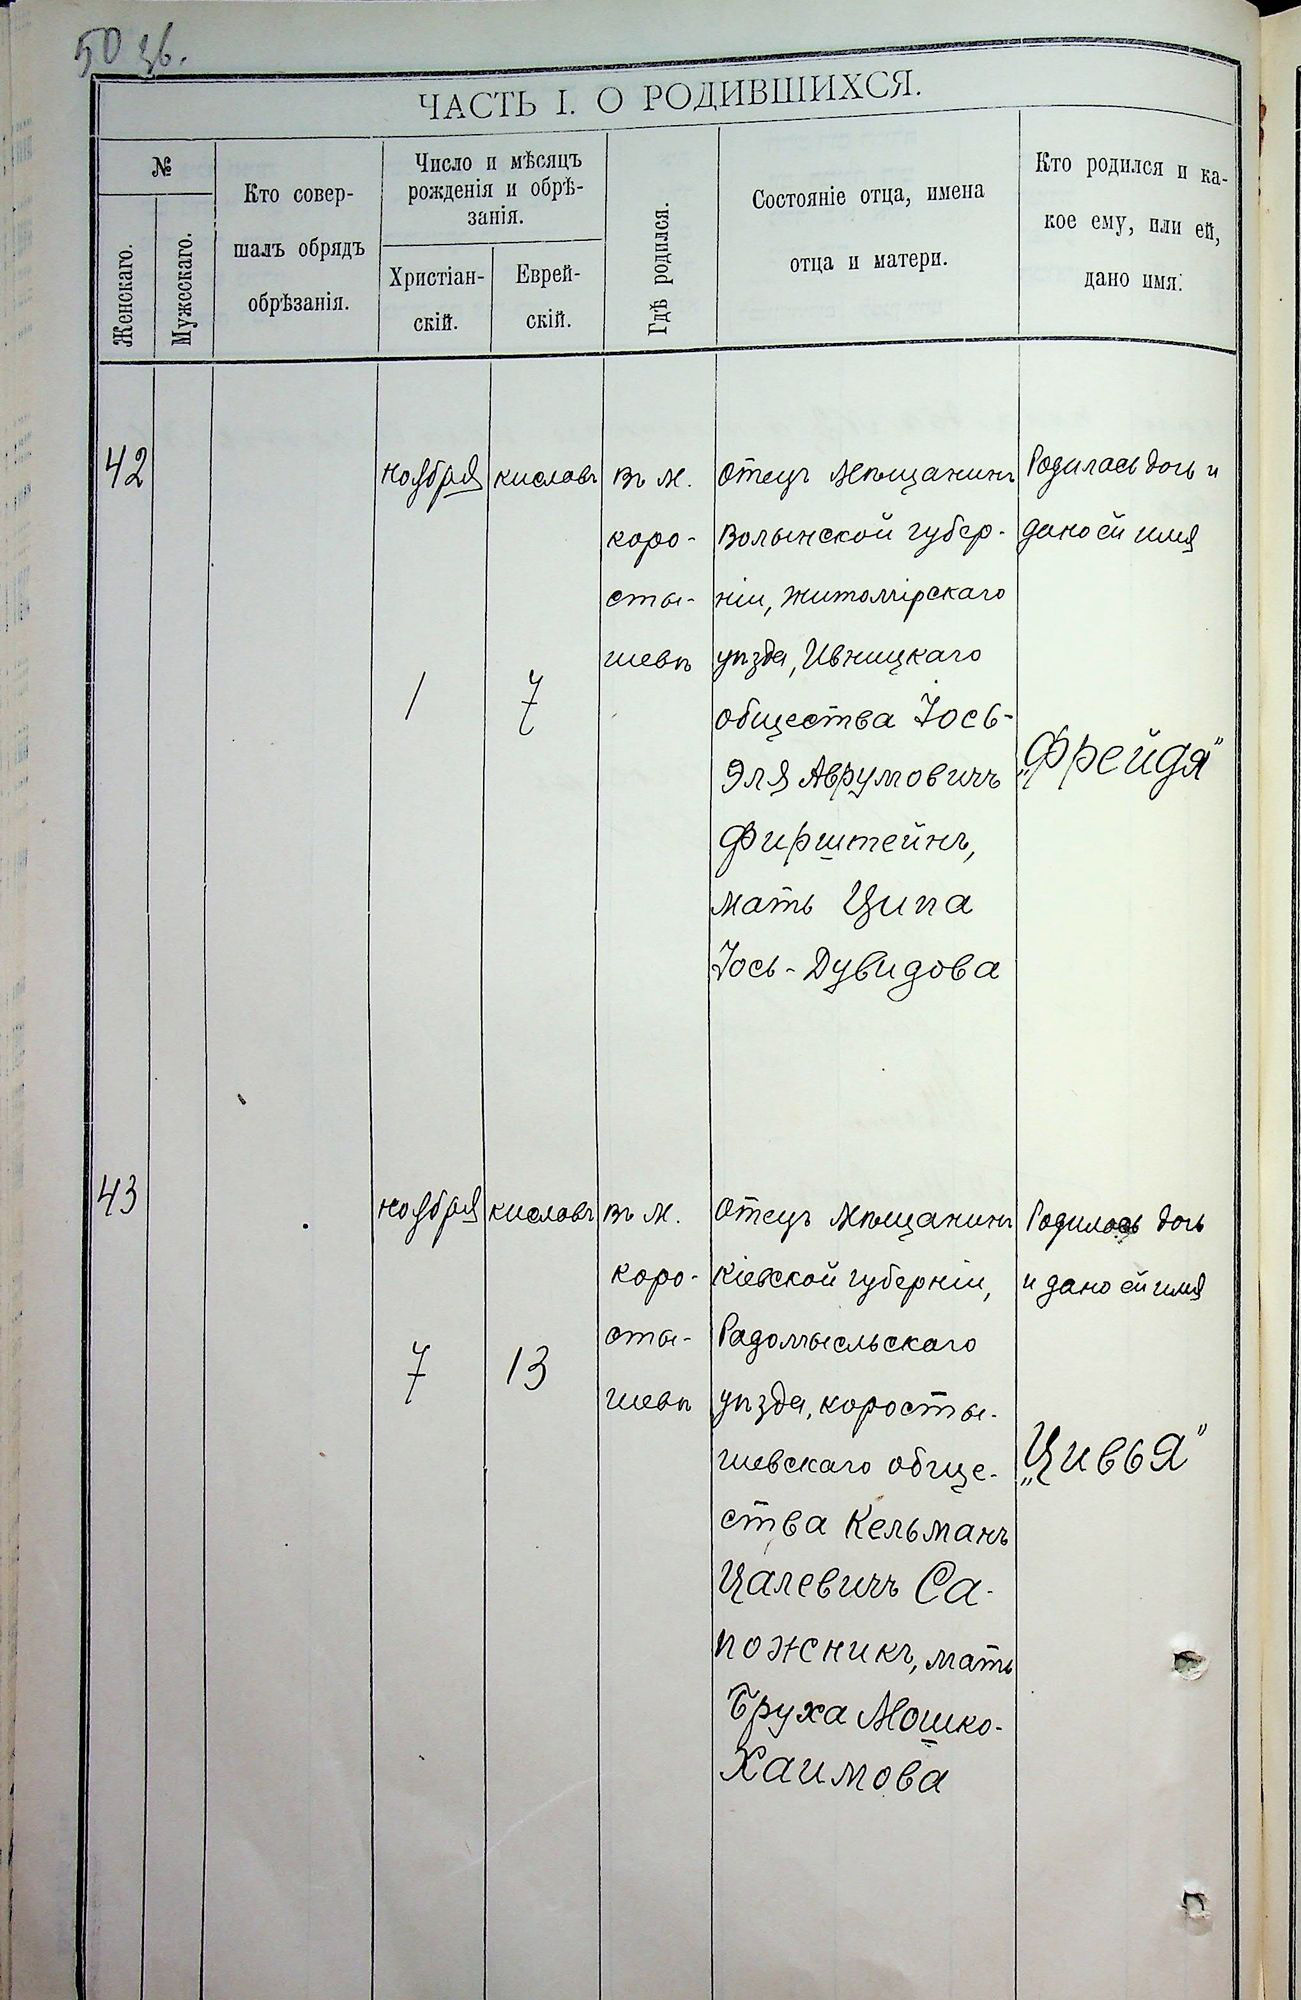 50 зв.
ЧАСТЬ I. О РОДИВШИХСЯ.
№
Женскаго.
Мужескаго.
Кто совер-
шалъ обрядъ
обрѣзанія.
Число и мѣсяцъ
рожденія и обрѣ-
занія.
Христіан-
скій.
Еврей-
скій.
Гдѣ родился.
Состояніе отца, имена
отца и матери.
Кто родился и ка-
кое ему, или ей,
дано имя.
42
ноября
1
кислевъ
7
въ м.
коро-
сты-
шевѣ
Отецъ мѣщанинъ
Волынской губер-
ніи, житомірскаго
уѣзда, Ивницкаго
общества Іось-
Эля Аврумовичъ
Фирштейнъ,
мать Ципа
Іось-Дувидова
Родилась дочь и
дано ей имя
„Фрейдя"
43
ноября
7
кислевъ
13
въ м.
коро-
сты-
шевѣ
Отецъ мѣщанинъ
Кіевской губерніи,
Радомысльскаго
уѣзда, коросты-
шевскаго обще-
ства Кельманъ
Цалевичъ Са-
пожникъ, мать
Бруха Мошко-
Хаимова
Родилась дочь
и дано ей имя
„Цивья"